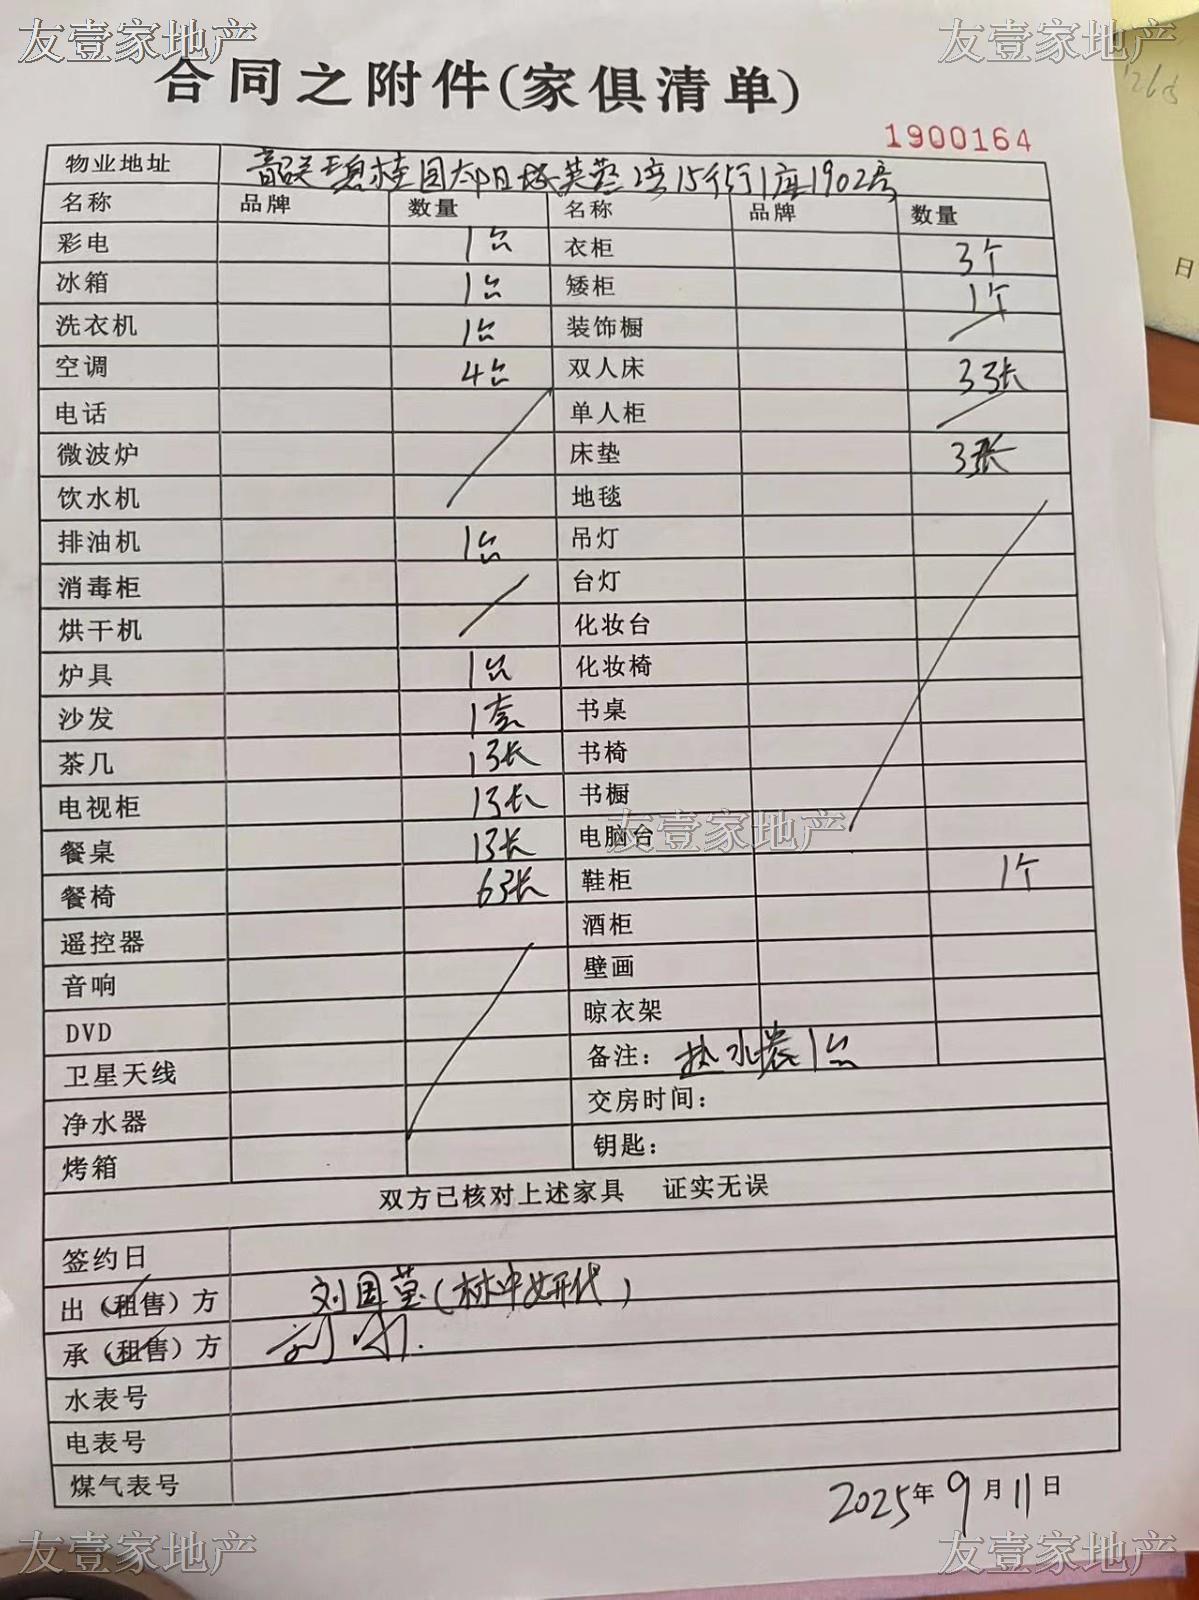 友壹家地产 友壹家地产
合同之附件(家俱清单)
1900164
物业地址 韶关碧桂园太阳城芙蓉湾15街1座1902号
名称 品牌 数量 名称 品牌 数量
彩电 1台 衣柜 3个
冰箱 1台 矮柜 1个
洗衣机 1台 装饰橱
空调 4台 双人床 3张
电话 单人柜
微波炉 床垫 3张
饮水机 地毯
排油机 1台 吊灯
消毒柜 台灯
烘干机 化妆台
炉具 1台 化妆椅
沙发 1套 书桌
茶几 1张 书椅
电视柜 1张 书橱
友壹家地产
餐桌 1张 电脑台
餐椅 6张 鞋柜 1个
遥控器 酒柜
音响 壁画
DVD 晾衣架
卫星天线 备注: 热水器1台
净水器 交房时间:
烤箱 钥匙:
双方已核对上述家具 证实无误
签约日
出(租售)方 刘国莹(林中妍代)
承(租售)方
水表号
电表号
煤气表号
2025年9月11日
友壹家地产 友壹家地产
日